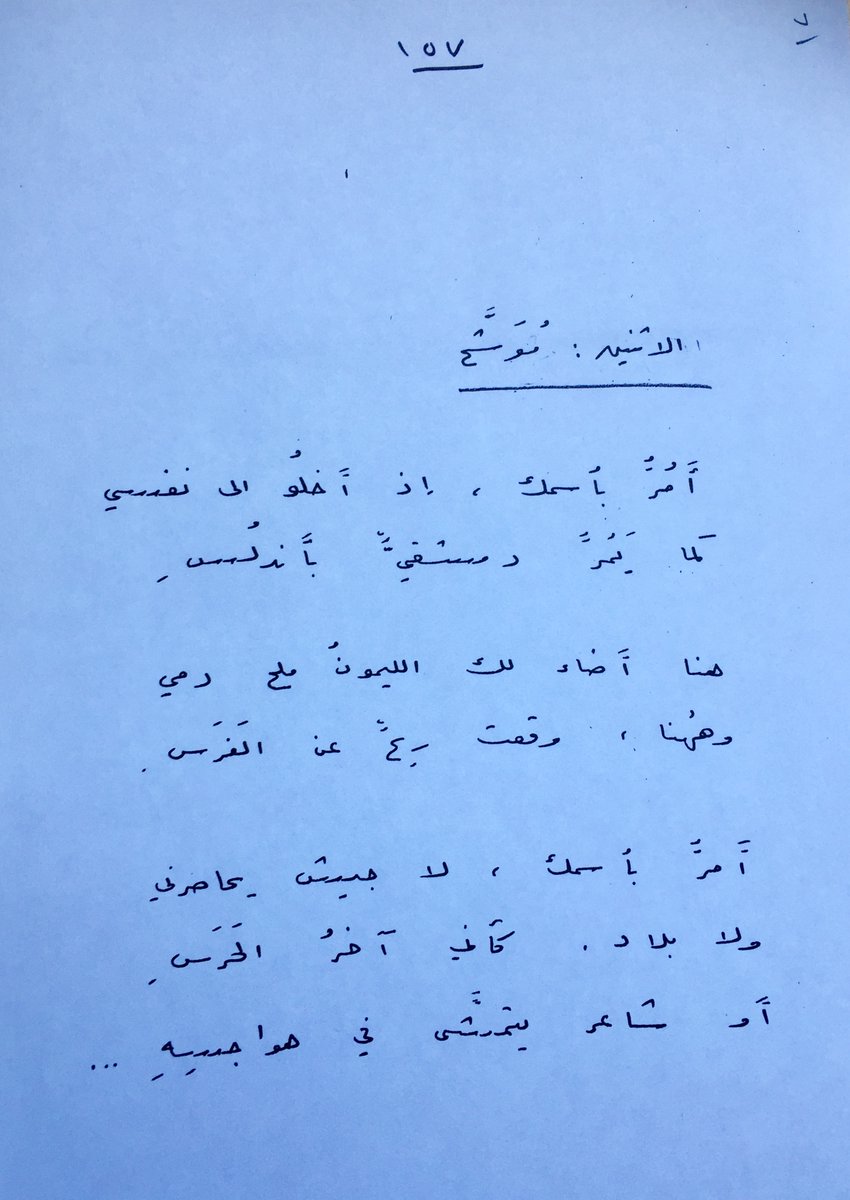 ١٥٧
٧١
الاثنين : مُوَشَّح
أَمُرُّ بأسمك ، إذ أَخلُو الى نفسي
كما يَمُرُّ دمشقيٌّ بأَندلُسِ
هنا أَضاء لك الليمونُ ملح دمي
وههُنا ، وقعت ريحٌ عن الفَرَسِ
أَمرُّ بأسمك ، لا جيش يحاصرني
ولا بلاد . كأَني آخرُ الحَرَسِ
أَو شاعر يتمشَّى في هواجسِهِ ...